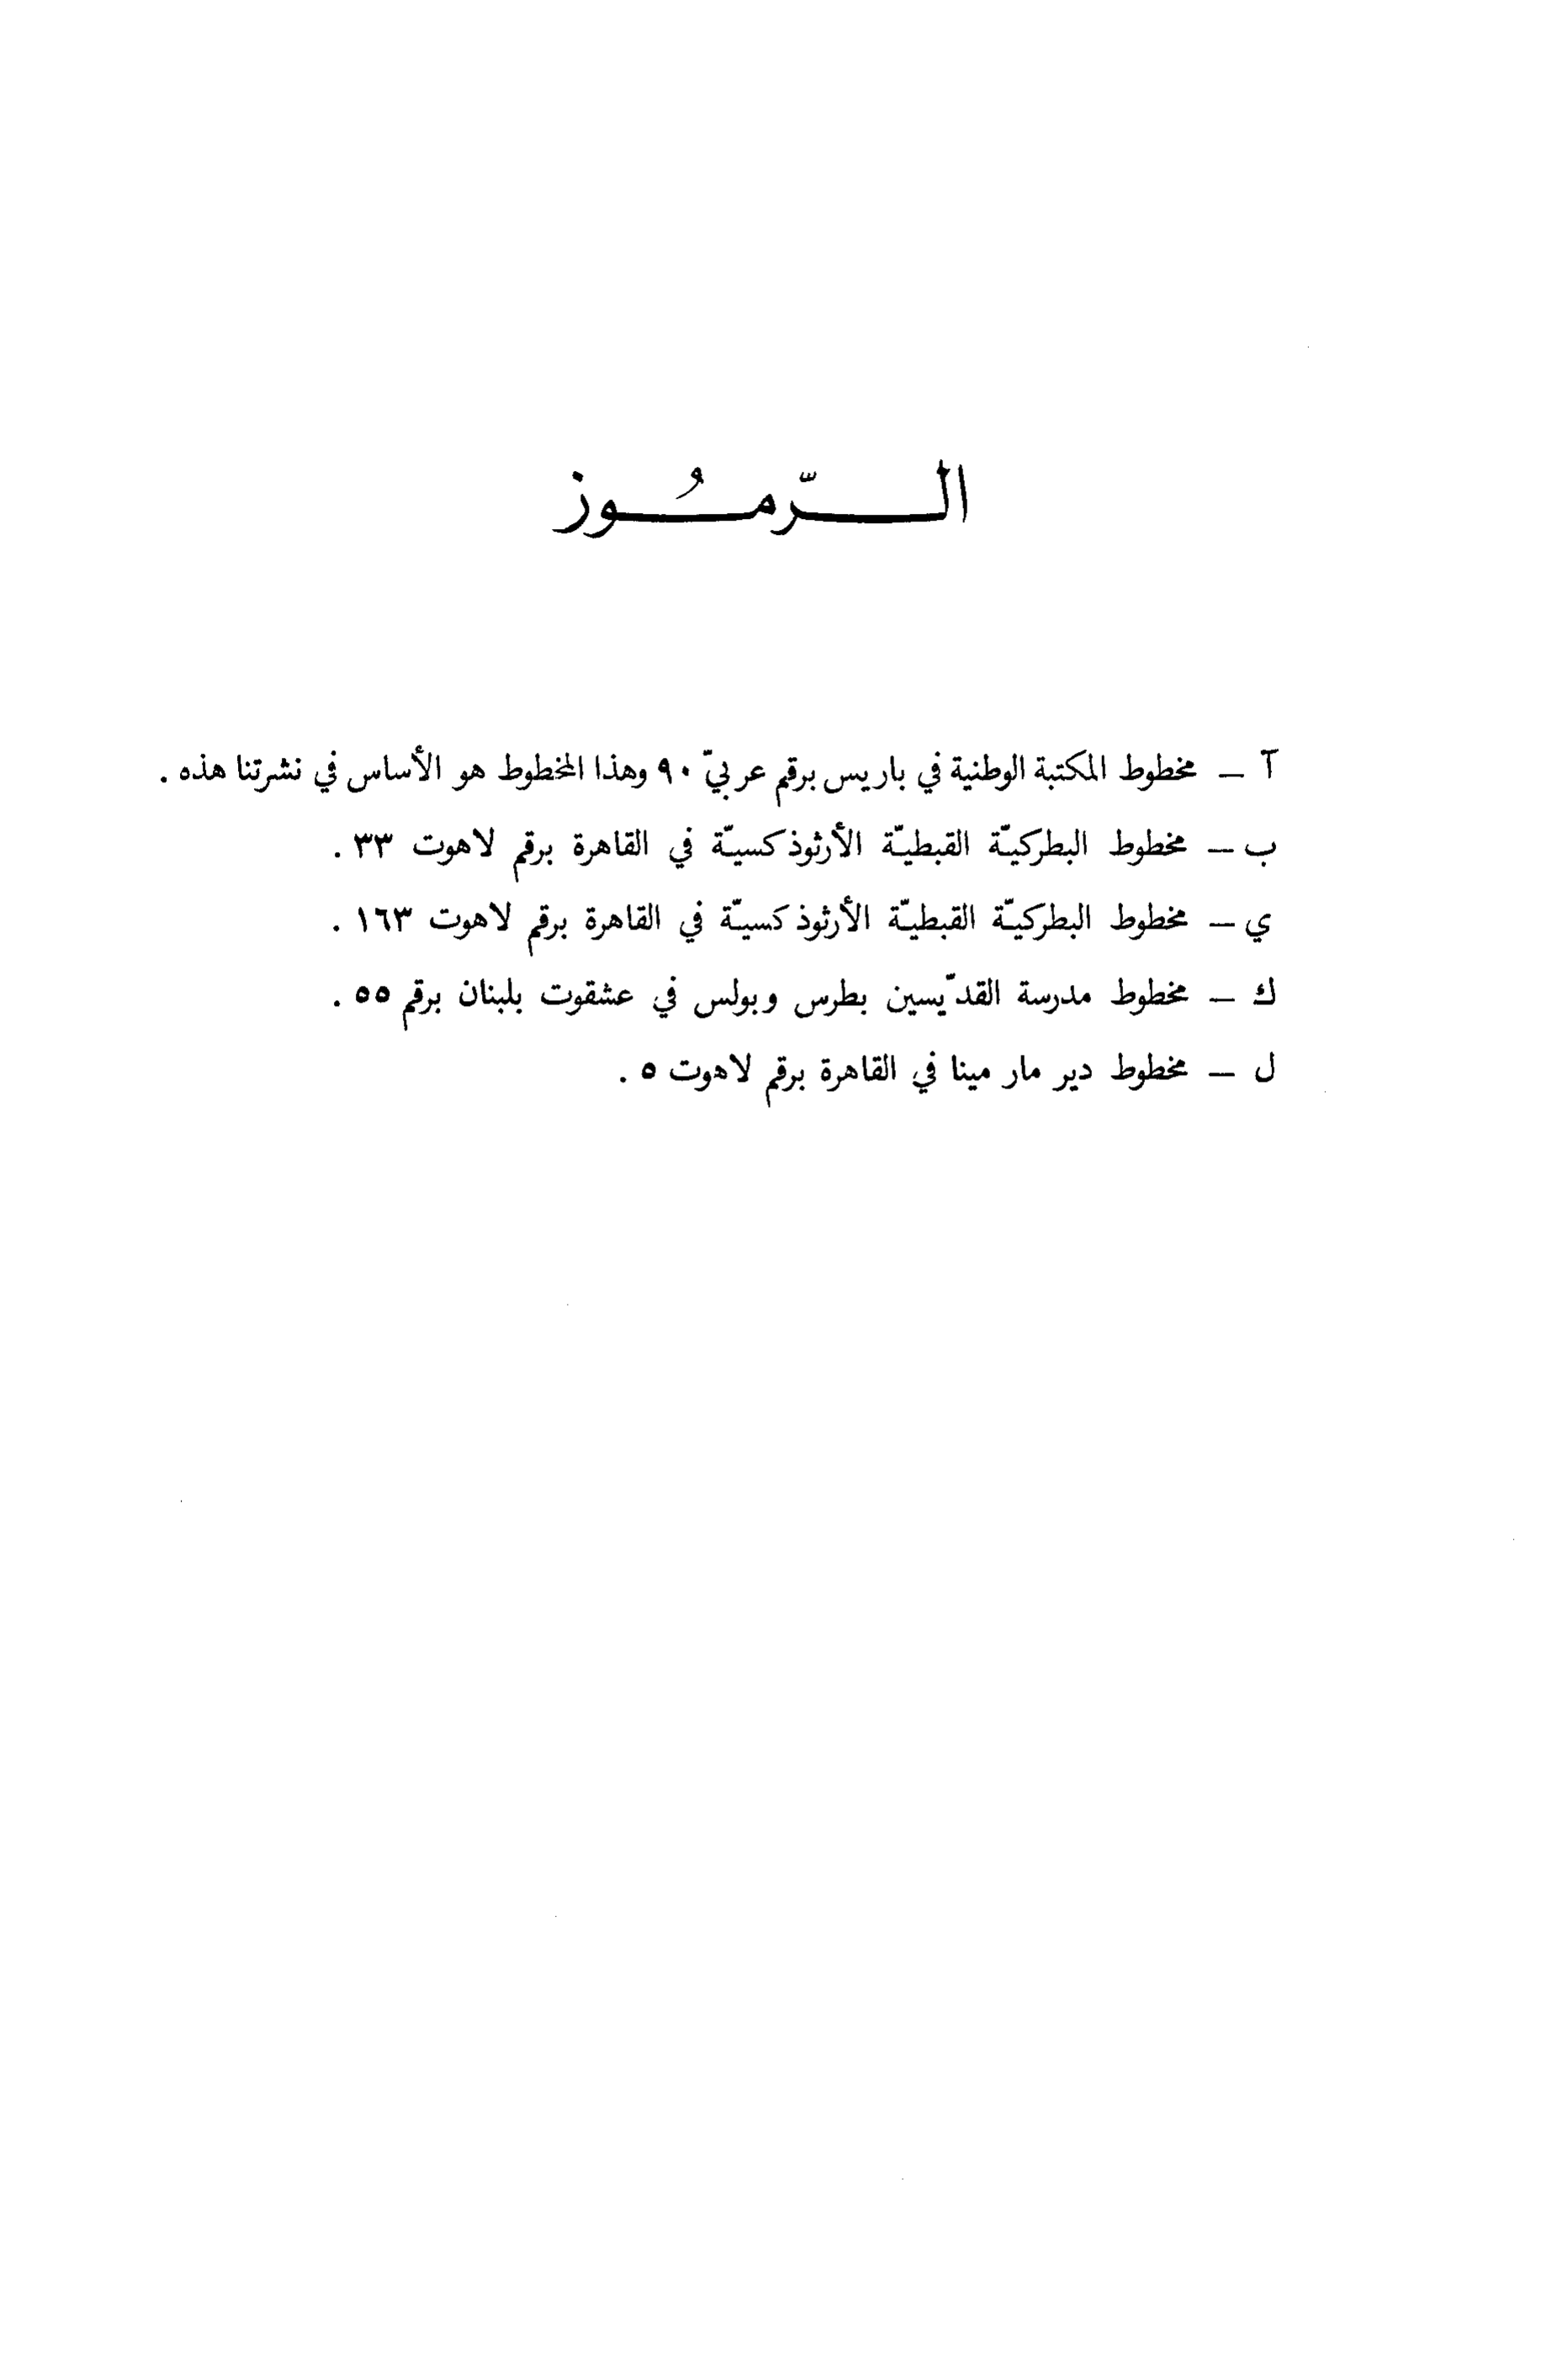 الــرّمــُوز
آ – مخطوط المكتبة الوطنية في باريس برقم عربيّ ٩٠ وهذا المخطوط هو الأساس في نشرتنا هذه .
ب – مخطوط البطركيّة القبطيّة الأرثوذكسيّة في القاهرة برقم لاهوت ٣٣ .
ي – مخطوط البطركيّة القبطيّة الأرثوذكسيّة في القاهرة برقم لاهوت ١٦٣ .
ك – مخطوط مدرسة القدّيسين بطرس وبولس في عشقوت بلبنان برقم ٥٥ .
ل – مخطوط دير مار مينا في القاهرة برقم لاهوت ٥ .